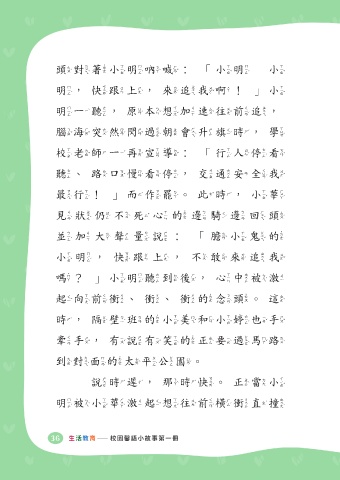 頭對著小明吶喊：「小明，小
明，快跟上，來追我啊！」小
明一聽，原本想加速往前追，
腦海突然閃過朝會升旗時，學
校老師一再宣導：「行人停看
聽、路口慢看停，交通安全我
最行！」而作罷。此時，小華
見狀仍不死心的邊騎邊回頭
並加大聲量說：「膽小鬼的
小明，快跟上，不敢來追我
嗎？」小明聽到後，心中被激
起向前衝、衝、衝的念頭。這
時，隔壁班的小美和小婷也手
牽手，有說有笑的正要過馬路
到對面的太平公園。
說時遲，那時快。正當小
明被小華激起想往前橫衝直撞
36 生活教育——校園警語小故事第一冊